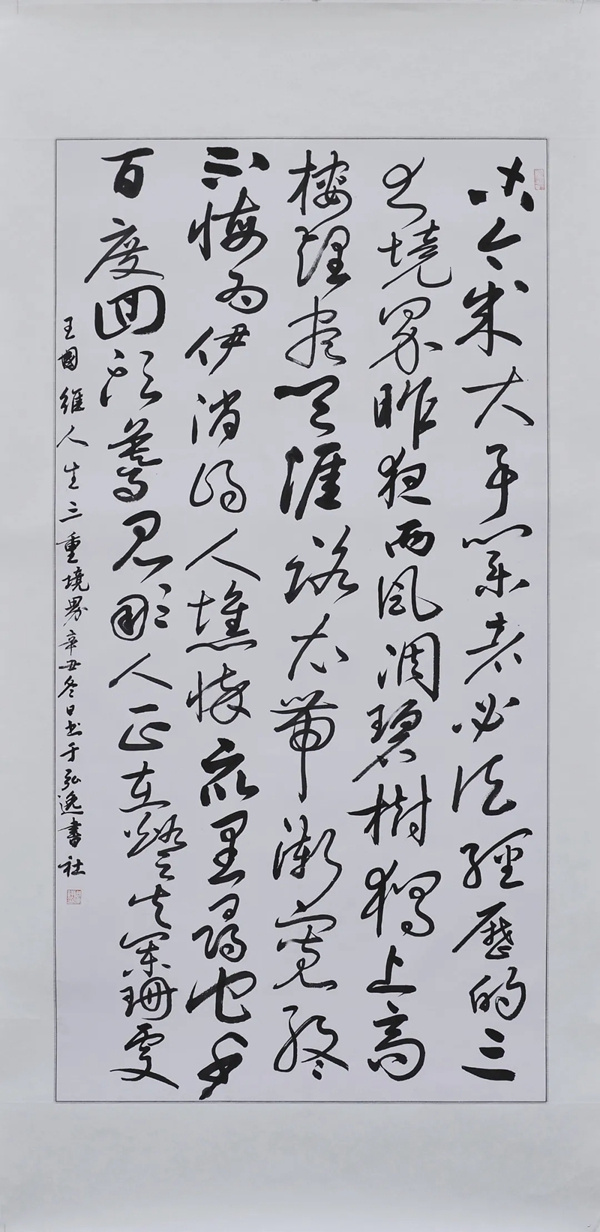 古今成大事業者必須經歷的三
境界昨夜西風凋碧樹獨上高
樓望盡天涯路衣帶漸寬終
不悔為伊消得人憔悴衆里尋他千
百度回頭驀見那人正在燈火闌珊處
王國維人生三重境界辛丑冬日书于弘逸書社